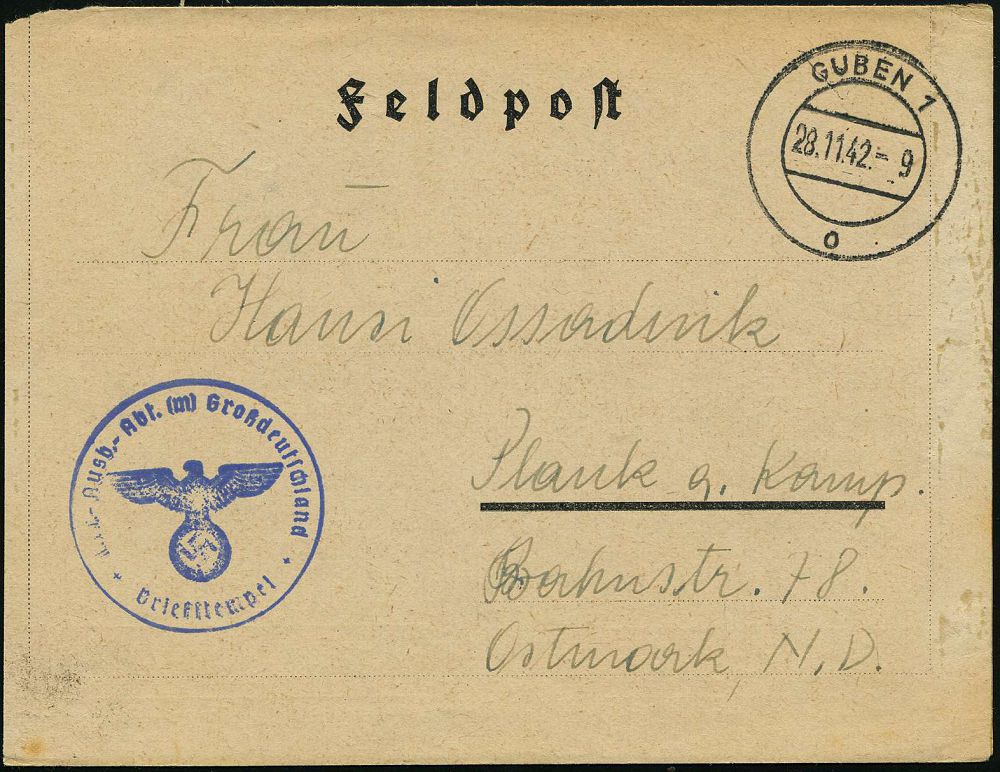 Feldpost
GUBEN 1
28.11.42.-9
o
Frau
Hansi Ossadnik
Plank a. Kamp.
Bahnstr. 78.
Ostmark, N.D.
Ausb.-Abt. (m) Großdeutschland
Briefstempel